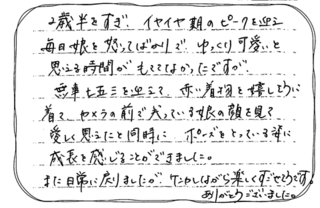 2歳半をすぎ、イヤイヤ期のピークを迎え
毎日娘を怒ってばかりで ゆっくり可愛いと
思える時間が もててなかったですが、
無事七五三を迎えて、赤い着物を嬉しそうに
着て、カメラの前で笑っている娘の顔を見て
愛しく思えたと同時に ポーズをとっている姿に
成長を感じることができました。
また日常に戻りましたが、ケンカしながら楽しくすごせそうです。
ありがとうございました。